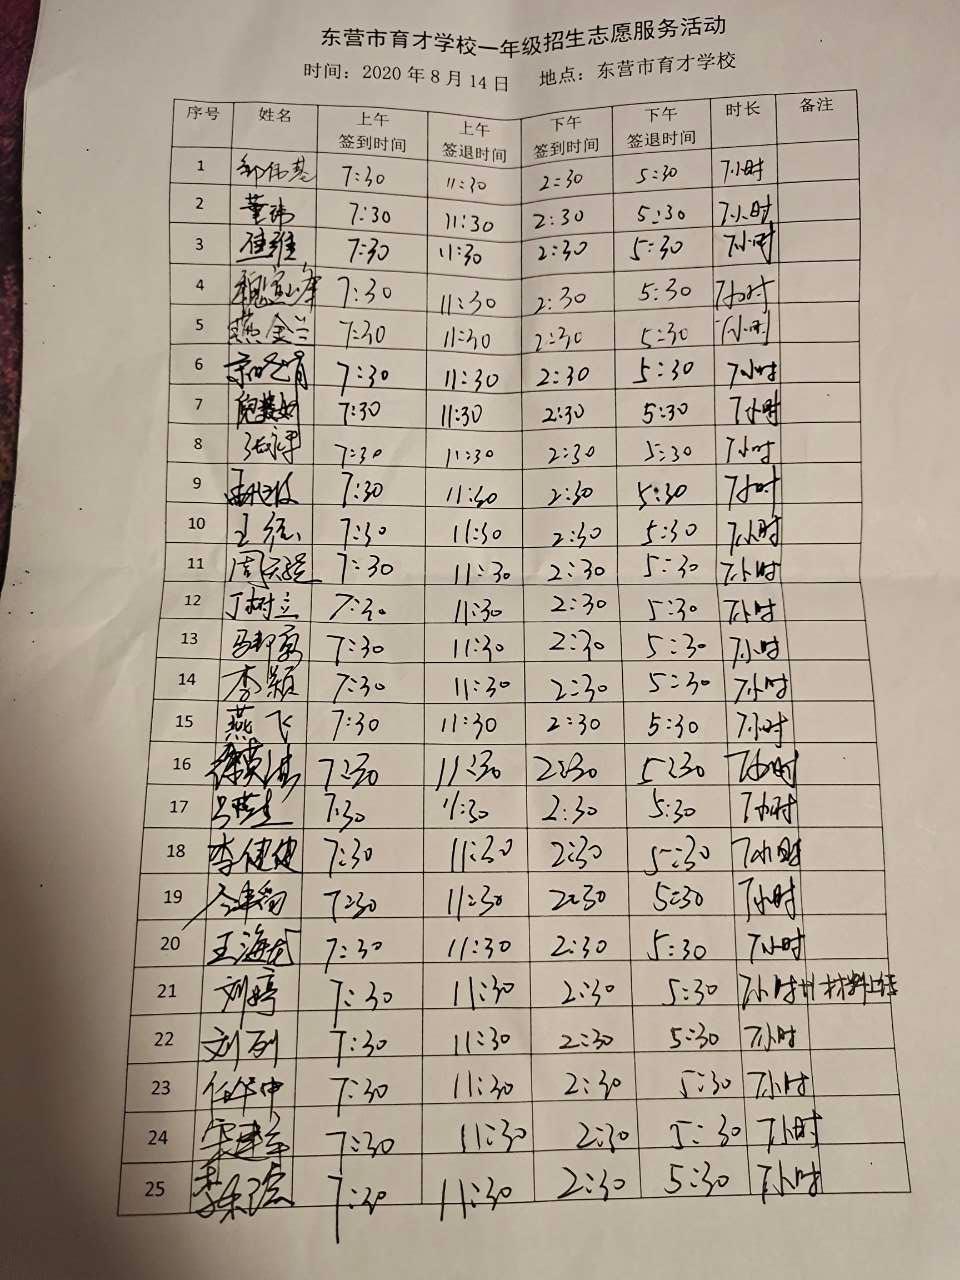 东营市育才学校一年级招生志愿服务活动
时间：2020年8月14日 地点：东营市育才学校
序号 姓名 上午签到时间 上午签退时间 下午签到时间 下午签退时间 时长 备注
1 7:30 11:30 2:30 5:30 7小时
2 董玮 7:30 11:30 2:30 5:30 7小时
3 7:30 11:30 2:30 5:30 7小时
4 7:30 11:30 2:30 5:30 7小时
5 燕金兰 7:30 11:30 2:30 5:30 7小时
6 7:30 11:30 2:30 5:30 7小时
7 7:30 11:30 2:30 5:30 7小时
8 7:30 11:30 2:30 5:30 7小时
9 7:30 11:30 2:30 5:30 7小时
10 7:30 11:30 2:30 5:30 7小时
11 7:30 11:30 2:30 5:30 7小时
12 丁树立 7:30 11:30 2:30 5:30 7小时
13 7:30 11:30 2:30 5:30 7小时
14 李颖 7:30 11:30 2:30 5:30 7小时
15 燕飞 7:30 11:30 2:30 5:30 7小时
16 7:30 11:30 2:30 5:30 7小时
17 7:30 11:30 2:30 5:30 7小时
18 李健健 7:30 11:30 2:30 5:30 7小时
19 7:30 11:30 2:30 5:30 7小时
20 王海龙 7:30 11:30 2:30 5:30 7小时
21 刘婷 7:30 11:30 2:30 5:30 7小时 材料上传
22 刘列 7:30 11:30 2:30 5:30 7小时
23 任华中 7:30 11:30 2:30 5:30 7小时
24 宋建军 7:30 11:30 2:30 5:30 7小时
25 7:30 11:30 2:30 5:30 7小时